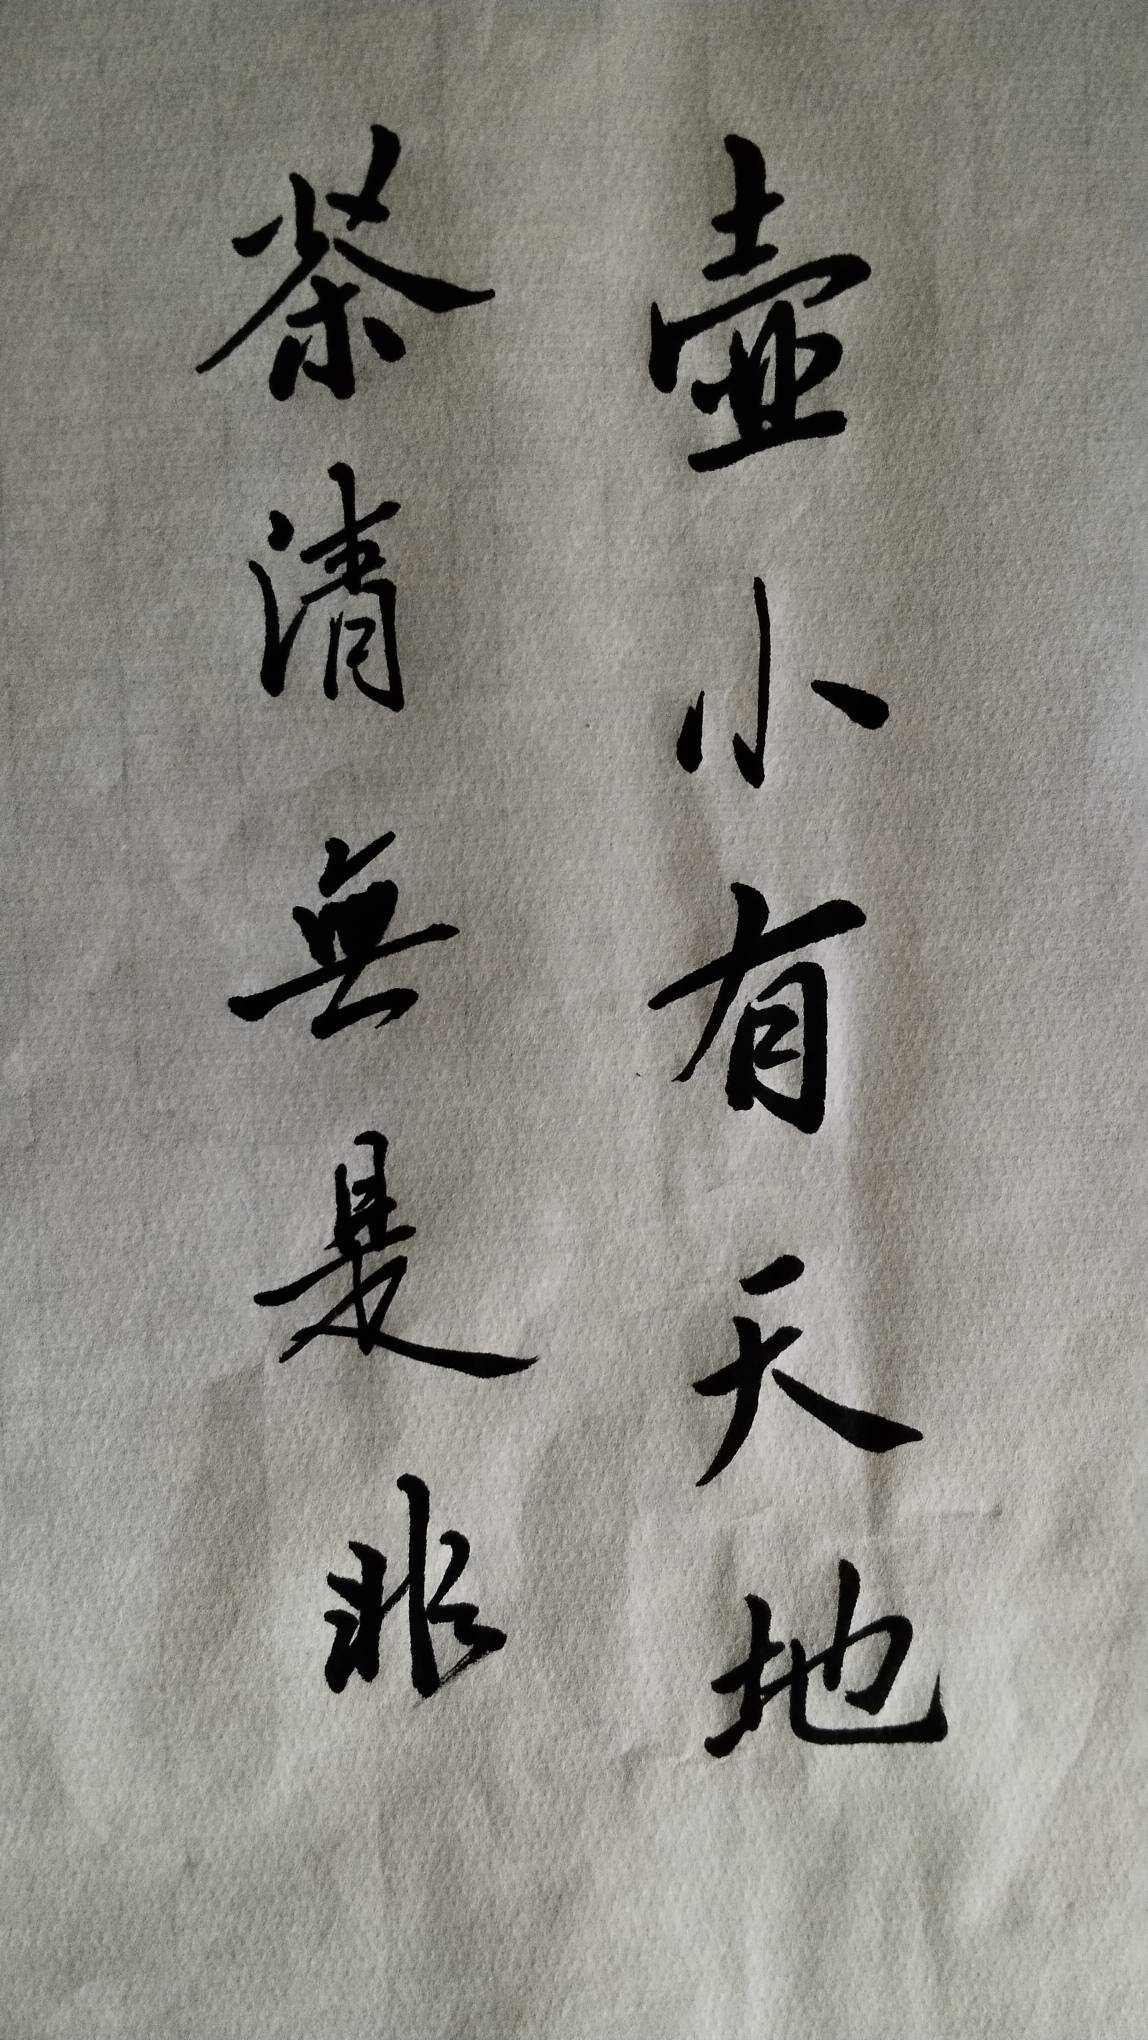 壺小有天地
茶清無是非